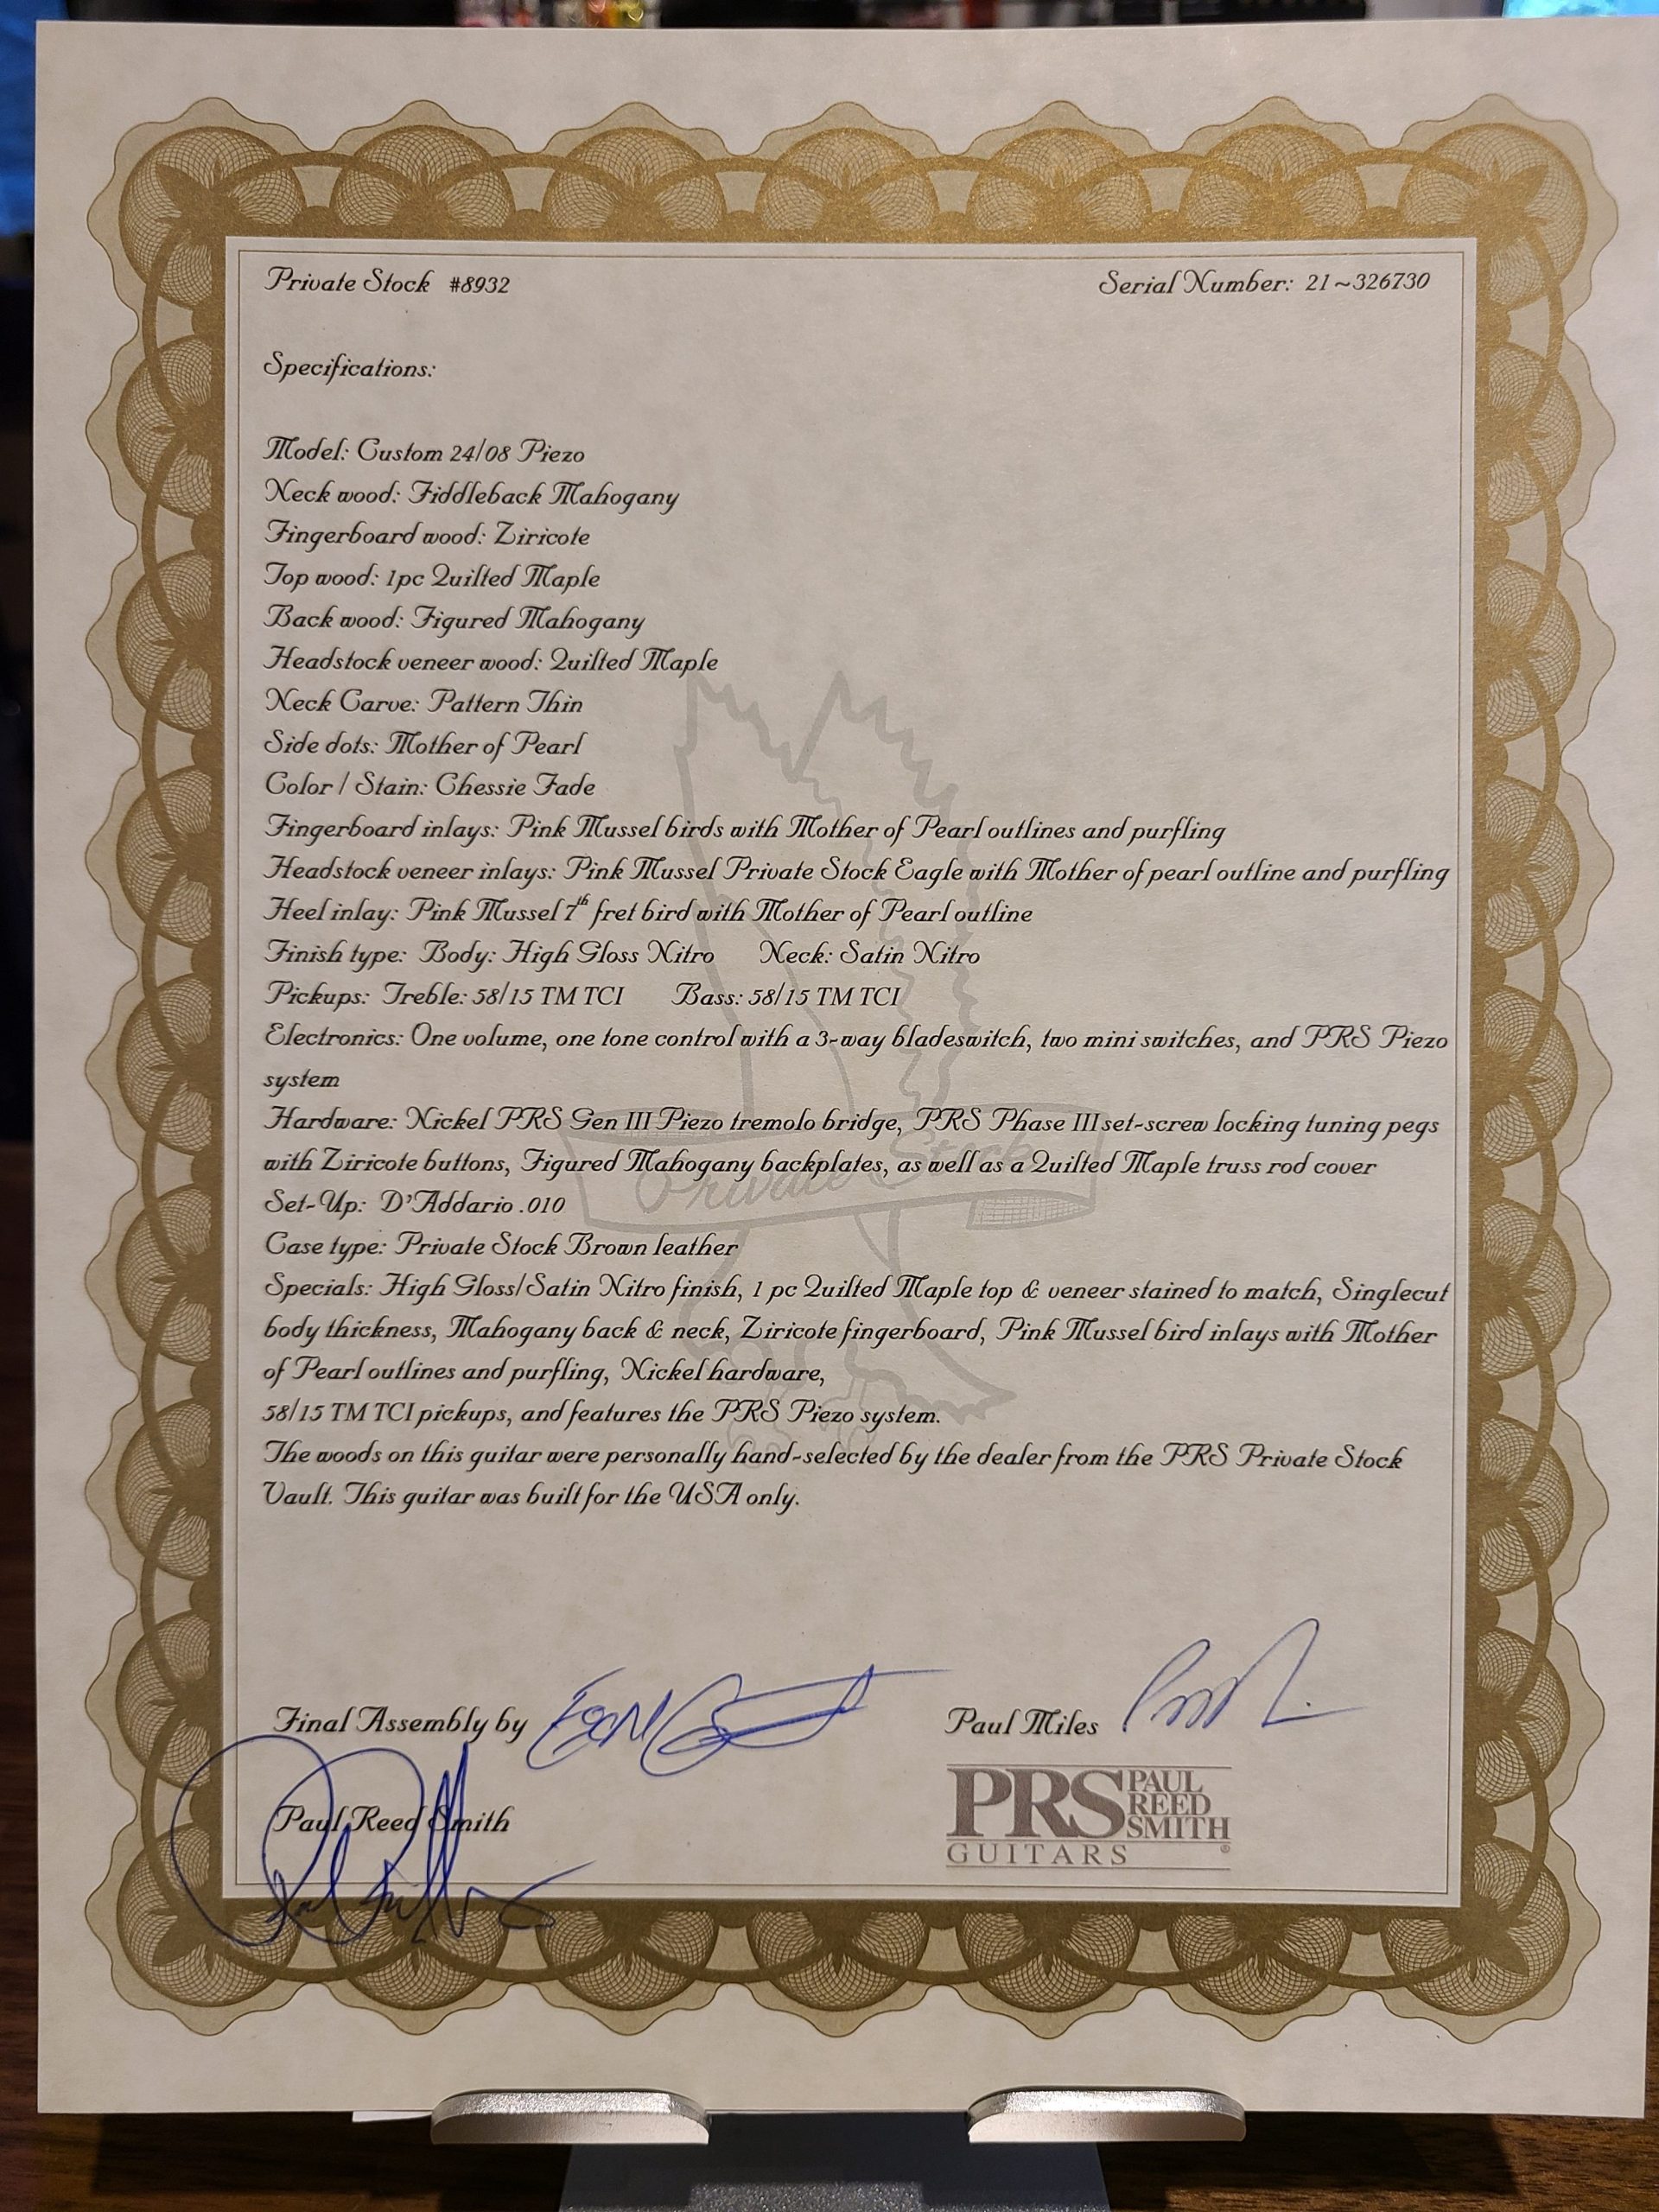 Private Stock #8932 Serial Number: 21~326730
Specifications:
Model: Custom 24/08 Piezo
Neck wood: Fiddleback Mahogany
Fingerboard wood: Ziricote
Top wood: 1pc Quilted Maple
Back wood: Figured Mahogany
Headstock veneer wood: Quilted Maple
Neck Carve: Pattern Thin
Side dots: Mother of Pearl
Color / Stain: Chessie Fade
Fingerboard inlays: Pink Mussel birds with Mother of Pearl outlines and purfling
Headstock veneer inlays: Pink Mussel Private Stock Eagle with Mother of pearl outline and purfling
Heel inlay: Pink Mussel 7th fret bird with Mother of Pearl outline
Finish type: Body: High Gloss Nitro Neck: Satin Nitro
Pickups: Treble: 58/15 TM TCI Bass: 58/15 TM TCI
Electronics: One volume, one tone control with a 3-way bladeswitch, two mini switches, and PRS Piezo
system
Hardware: Nickel PRS Gen III Piezo tremolo bridge, PRS Phase III set-screw locking tuning pegs
with Ziricote buttons, Figured Mahogany backplates, as well as a Quilted Maple truss rod cover
Private Stock
Set-Up: D'Addario .010
Case type: Private Stock Brown leather
Specials: High Gloss/Satin Nitro finish, 1 pc Quilted Maple top & veneer stained to match, Singlecut
body thickness, Mahogany back & neck, Ziricote fingerboard, Pink Mussel bird inlays with Mother
of Pearl outlines and purfling, Nickel hardware,
58/15 TM TCI pickups, and features the PRS Piezo system.
The woods on this guitar were personally hand-selected by the dealer from the PRS Private Stock
Vault. This guitar was built for the USA only.
Final Assembly by
Paul Miles
Paul Reed Smith
PRS PAUL
REED
SMITH
GUITARS ®